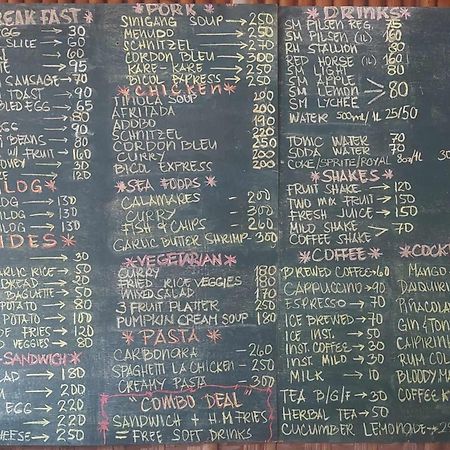 BREAKFAST
EGG → 30
SLICE → 60
95
SAUSAGE → 70
TOAST → 90
BLED EGG → 65
80
EGG → 90
BEANS → 80
W/ FRUIT → 160
30
120
LOG → 130
LOG → 130
LOG → 130
SIDES *
→ 30
GARLIC RICE → 50
BREAD → 20
BAGUETTE → 50
POTATO → 100
POTATO → 100
FRIES → 120
VEGGIES → 80
SANDWICH *
→ 180
→ 180
EGG → 220
→ 220
CHEESE → 250
* PORK *
SINIGANG SOUP → 250
MENUDO → 250
SCHNITZEL → 270
CORDON BLEU → 300
KARE-KARE → 250
BICOL EXPRESS → 250
* CHICKEN *
TINOLA SOUP 200
AFRITADA 200
ADOBO 190
SCHNITZEL 200
CORDON BLEU 250
CURRY 200
BICOL EXPRESS 200
* SEA FOODS *
CALAMARES - 200
CURRY - 300
FISH & CHIPS - 260
GARLIC BUTTER SHRIMP - 300
* VEGETARIAN *
CURRY 180
FRIED RICE VEGGIES 180
MIXED SALAD 170
3 FRUIT PLATTER 250
PUMPKIN CREAM SOUP 180
* PASTA *
CARBONARA - 260
SPAGHETTI LA CHICKEN - 250
CREAMY PASTA - 300
"COMBO DEAL"
SANDWICH + H.M FRIES
= FREE SOFT DRINKS
* DRINKS *
SM PILSEN REG. 75
SM PILSEN (1L) 160
RH STALLION 80
RED HORSE (1L) 160
SM LIGHT 80
SM LEMON > 80
SM LYCHEE
WATER 500ml/1L 25/50
TONIC WATER 70
SODA WATER 70
COKE/SPRITE/ROYAL 8oz/1L 30
* SHAKES *
FRUIT SHAKE → 120
TWO MIX FRUIT → 150
FRESH JUICE → 150
MILD SHAKE > 70
COFFEE SHAKE
* COFFEE *
BREWED COFFEE → 60
CAPPUCCINO → 90
ESPRESSO → 70
ICE BREWED → 70
ICE INST. → 50
INST. COFFEE → 30
INST. MILD → 30
MILK → 10
TEA B/G/F → 30
HERBAL TEA → 50
CUCUMBER LEMONADE →
COCK
MANGO
DAIQUIRI
PIÑACOLA
GIN & TON
CAIPIRIN
RUM CO
BLOODY MA
COFFEE